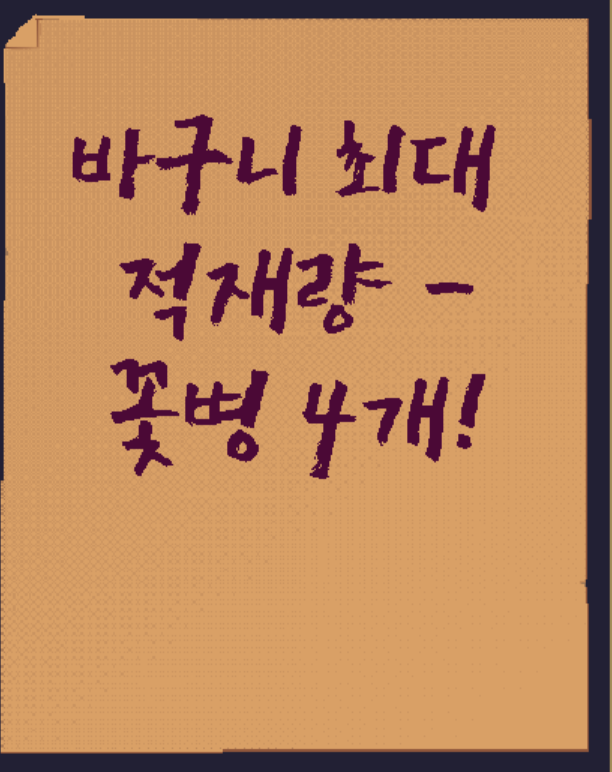 바구니 최대
적재량 -
꽃병 4개!